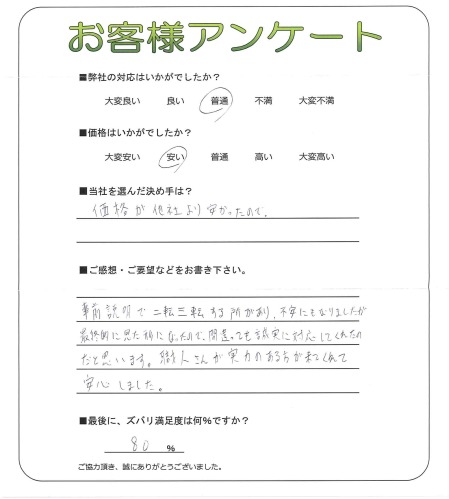 お客様アンケート
■弊社の対応はいかがでしたか？
大変良い 良い 普通 不満 大変不満
■価格はいかがでしたか？
大変安い 安い 普通 高い 大変高い
■当社を選んだ決め手は？
価格が他社より安かったので、
■ご感想・ご要望などをお書き下さい。
事前説明で二転三転する所があり、不安にもなりましたが
最終的に見た初になったので、間違っても誠実に対応してくれたの
だと思います。職人さんが実力のある方が来てくれて
安心しました。
■最後に、ズバリ満足度は何％ですか？
80 %
ご協力頂き、誠にありがとうございました。